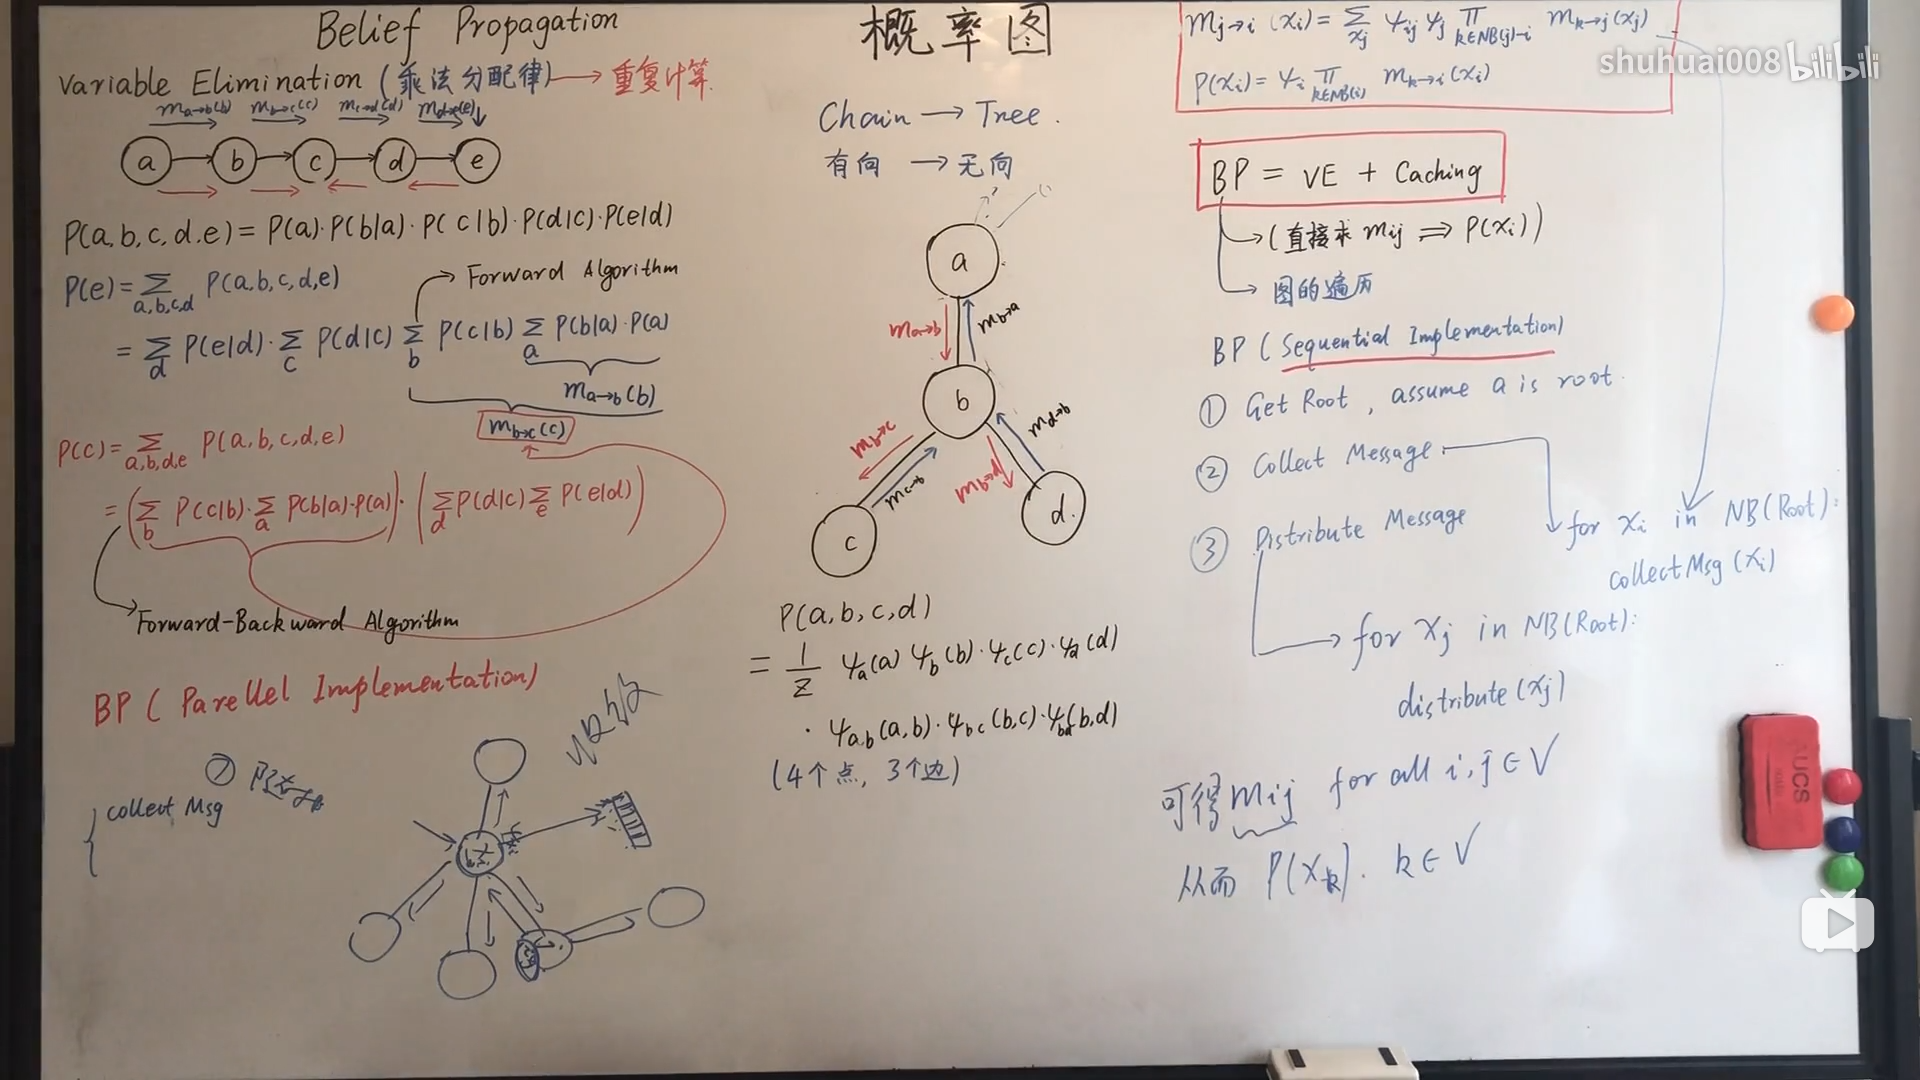 Belief Propagation
Variable Elimination (乘法分配律) → 重复计算
m_{a→b}(b) m_{b→c}(c) m_{c→d}(d) m_{d→e}(e)
a b c d e
P(a,b,c,d,e) = P(a)·P(b|a)·P(c|b)·P(d|c)·P(e|d)
P(e) = ∑_{a,b,c,d} P(a,b,c,d,e)
→ Forward Algorithm
= ∑_d P(e|d)·∑_c P(d|c) ∑_b P(c|b) ∑_a P(b|a)·P(a)
m_{a→b}(b)
m_{b→c}(c)
P(c) = ∑_{a,b,d,e} P(a,b,c,d,e)
= (∑_b P(c|b)·∑_a P(b|a)·P(a))·(∑_d P(d|c) ∑_e P(e|d))
Forward-Backward Algorithm
BP (Parellel Implementation)
collect Msg
概率图
Chain → Tree.
有向 → 无向
a
m_{a→b} m_{b→a}
b
m_{b→c} m_{c→b} m_{b→d} m_{d→b}
c d
P(a,b,c,d)
= 1/Z ψ_a(a) ψ_b(b)·ψ_c(c)·ψ_d(d)
·ψ_{a,b}(a,b)·ψ_{bc}(b,c)·ψ_{bd}(b,d)
(4个点, 3个边)
m_{j→i}(x_i) = ∑_{x_j} ψ_{ij} ψ_j ∏_{k∈NB(j)-i} m_{k→j}(x_j)
P(x_i) = ψ_i ∏_{k∈NB(i)} m_{k→i}(x_i)
shuhuai008 bilibili
BP = VE + Caching
→ (直接求 m_{ij} ⇒ P(x_i))
→ 图的遍历
BP (Sequential Implementation)
① Get Root, assume a is root.
② Collect Message
for x_i in NB(Root):
collectMsg(x_i)
③ Distribute Message
→ for x_j in NB(Root):
distribute(x_j)
可得 m_{ij} for all i,j ∈ V
从而 P(x_k). k ∈ V
AUCS